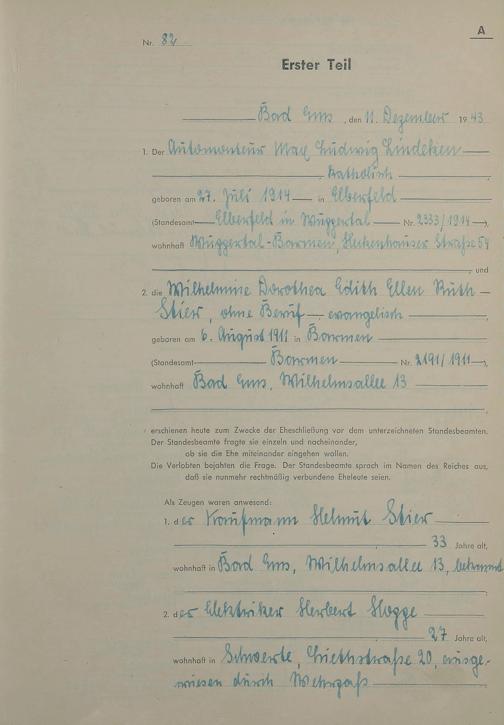 A
Nr. 82
Erster Teil
Bad Ems, den 11. Dezember 1943
1. Der Automonteur Max Ludwig Lindeken
katholisch
geboren am 27. Juli 1914 in Elberfeld
(Standesamt Elberfeld in Wuppertal Nr. 2333/1914),
wohnhaft Wuppertal-Barmen, Straße 54
, und
2. die Wilhelmine Dorothea Edith Ellen Ruth
Stier, ohne Beruf evangelisch
geboren am 6. August 1911 in Barmen
(Standesamt Barmen Nr. 2191/1911),
wohnhaft Bad Ems, Wilhelmsallee 13
erschienen heute zum Zwecke der Eheschließung vor dem unterzeichneten Standesbeamten.
Der Standesbeamte fragte sie einzeln und nacheinander,
ob sie die Ehe miteinander eingehen wollen.
Die Verlobten bejahten die Frage. Der Standesbeamte sprach im Namen des Reiches aus,
daß sie nunmehr rechtmäßig verbundene Eheleute seien.
Als Zeugen waren anwesend:
1. der Kaufmann Helmut Stier
33 Jahre alt,
wohnhaft in Bad Ems, Wilhelmsallee 13, bekannt
2. der Elektriker Herbert
27 Jahre alt,
wohnhaft in Schwerte, straße 20, ausge-
wiesen durch Wehrpaß